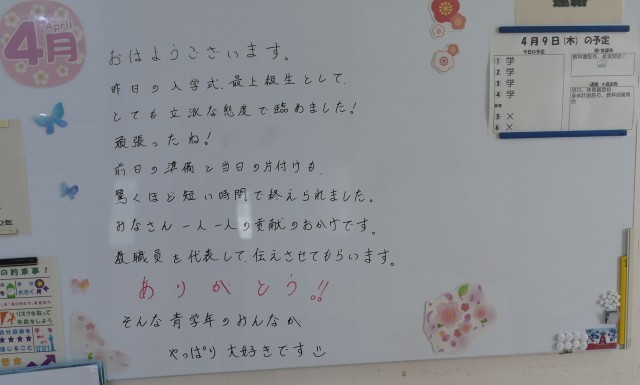 April
4月
おはようございます。
昨日の入学式、最上級生として、
とても立派な態度で臨めました！
頑張ったね！
前日の準備と当日の片付けも、
驚くほど短い時間で終えられました。
みなさん一人一人の貢献のおかげです。
教職員を代表して、伝えさせてもらいます。
ありがとう!!
そんな青学年のみんなが
やっぱり大好きです
4月9日(木)の予定
今日の予定
1 学
2 学
3 学
4 学
5 ×
6 ×
の約束事！